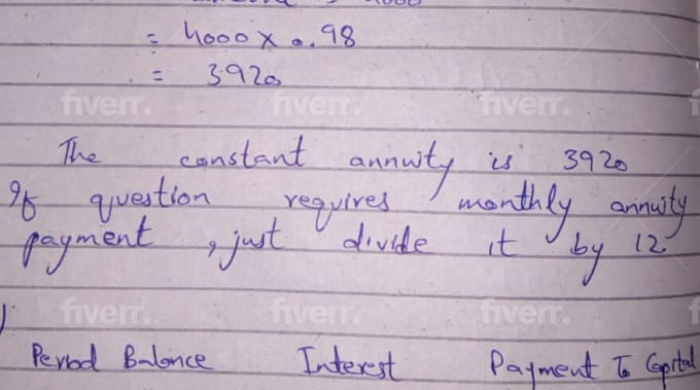 = 4000 × 0.98
= 3920
fiverr. fiverr. fiverr.
The constant annuity is 3920
If question requires monthly annuity
payment, just divide it by 12.
fiverr. fiverr. fiverr.
Period Balance Interest Payment To Capital